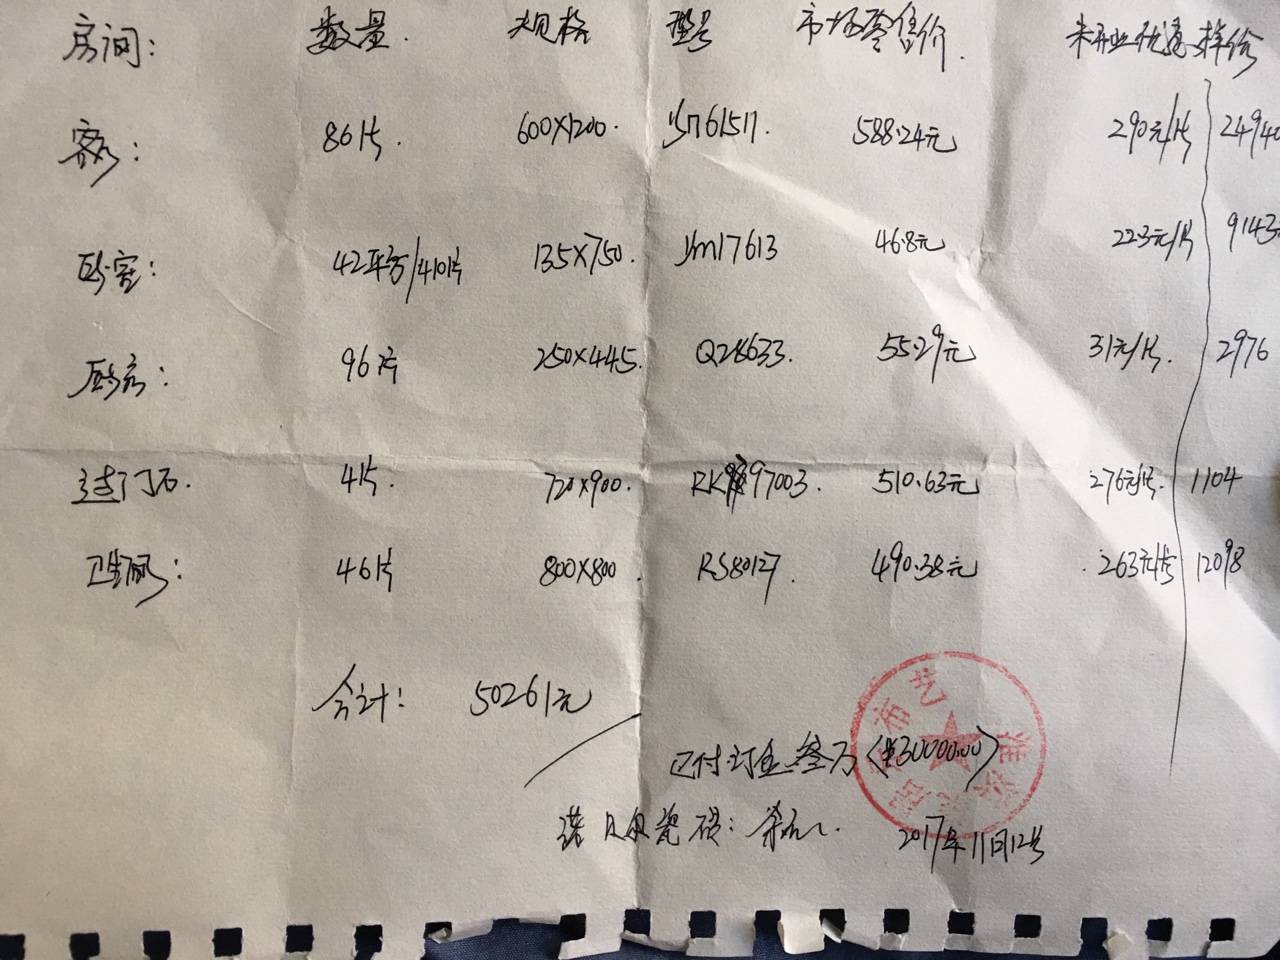 房间： 数量. 规格 型号 市场零售价. 未开业优惠 样价
客厅： 86片. 600×1200. 588.24元 290元/片 24940
卧室： 42平方/410片 135×750. ym17613 46.8元 22.3元/片 9143
厨房： 96片 250×445. Q28633. 55.29元 31元/片. 2976
过门石. 4片. 720×900. RK 97003. 510.63元 276元/片. 1104
卫生间： 46片 800×800. RS80127. 490.38元 263元/片 12098
合计： 50261元
已付订金叁万〈¥30000.00〉
诺贝尔瓷砖：
2017年11月12号
布艺